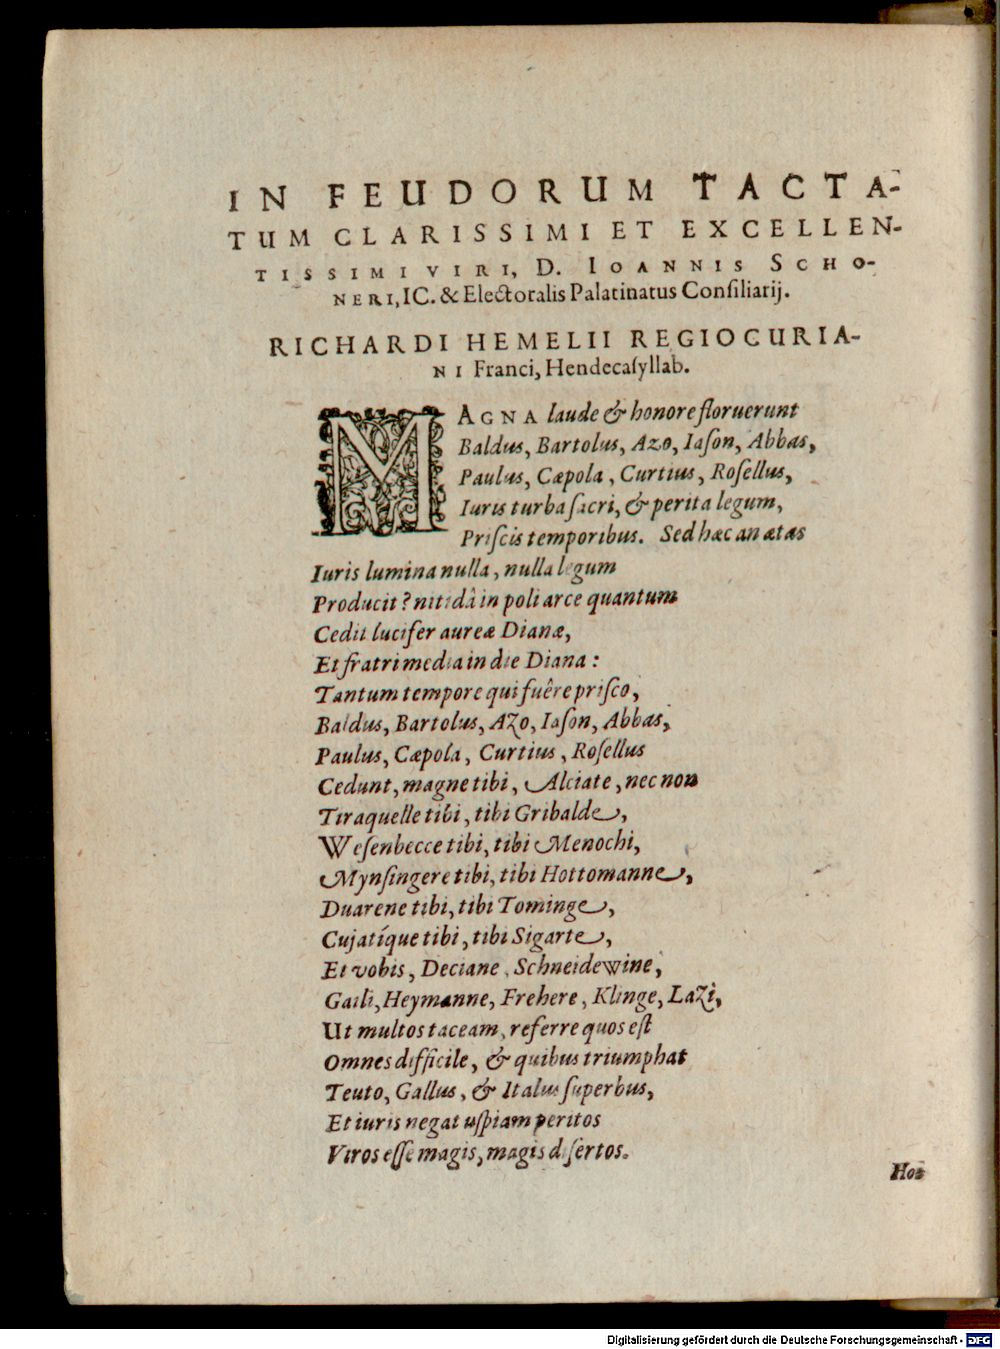 IN FEUDORUM TACTA-
TUM CLARISSIMI ET EXCELLEN-
TISSIMI VIRI, D. IOANNIS SCHO-
NERI, IC. & Electoralis Palatinatus Consiliarij.
RICHARDI HEMELII REGIOCURIA-
NI Franci, Hendecasyllab.
MAGNA laude & honore floruerunt
Baldus, Bartolus, Azo, Iason, Abbas,
Paulus, Cæpola, Curtius, Rosellus,
Iuris turba sacri, & perita legum,
Priscis temporibus. Sed hæc an ætas
Iuris lumina nulla, nulla legum
Producit? nitidâ in poli arce quantum
Cedit lucifer aureæ Dianæ,
Et fratri media in die Diana:
Tantum tempore qui fuêre prisco,
Baldus, Bartolus, Azo, Iason, Abbas,
Paulus, Cæpola, Curtius, Rosellus
Cedunt, magne tibi, Alciate, nec non
Tiraquelle tibi, tibi Gribalde,
Wesenbecce tibi, tibi Menochi,
Mynsingere tibi, tibi Hottomanne,
Duarene tibi, tibi Tominge,
Cujatíque tibi, tibi Sigarte,
Et vobis, Deciane, Schneidewine,
Gaili, Heymanne, Frehere, Klinge, Lazi,
Ut multos taceam, referre quos est
Omnes difficile, & quibus triumphat
Teuto, Gallus, & Italus superbus,
Et iuris negat uspiam peritos
Viros esse magis, magis disertos.
Hos
Digitalisierung gefördert durch die Deutsche Forschungsgemeinschaft - DFG